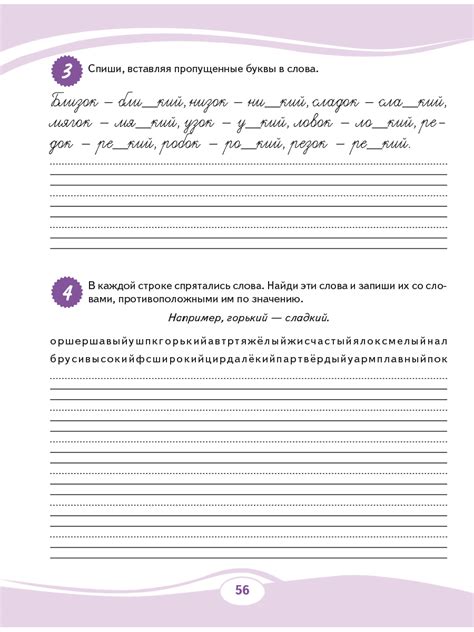 3 Спиши, вставляя пропущенные буквы в слова.
Близок – бли__кий, низок – ни__кий, сладок – сла__кий,
мягок – мя__кий, узок – у__кий, ловок – ло__кий, ре-
док – ре__кий, робок – ро__кий, резок – ре__кий.
4 В каждой строке спрятались слова. Найди эти слова и запиши их со сло-
вами, противоположными им по значению.
Например, горький — сладкий.
оршершавыйушпкгорькийавтртяжёлыйжисчастыйялоксмелыйнал
брусивысокийфсширокийцирдалёкийпартвёрдыйуармплавныйпок
56